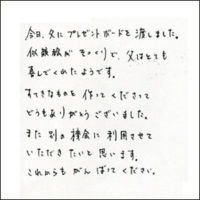 今日、父にプレゼントボードを渡しました。
似顔絵がそっくりで、父はとても
喜んでくれたようです。
すてきなものを作ってくださって
どうもありがとうございました。
また別の機会に利用させて
いただきたいと思います。
これからもがんばってください。